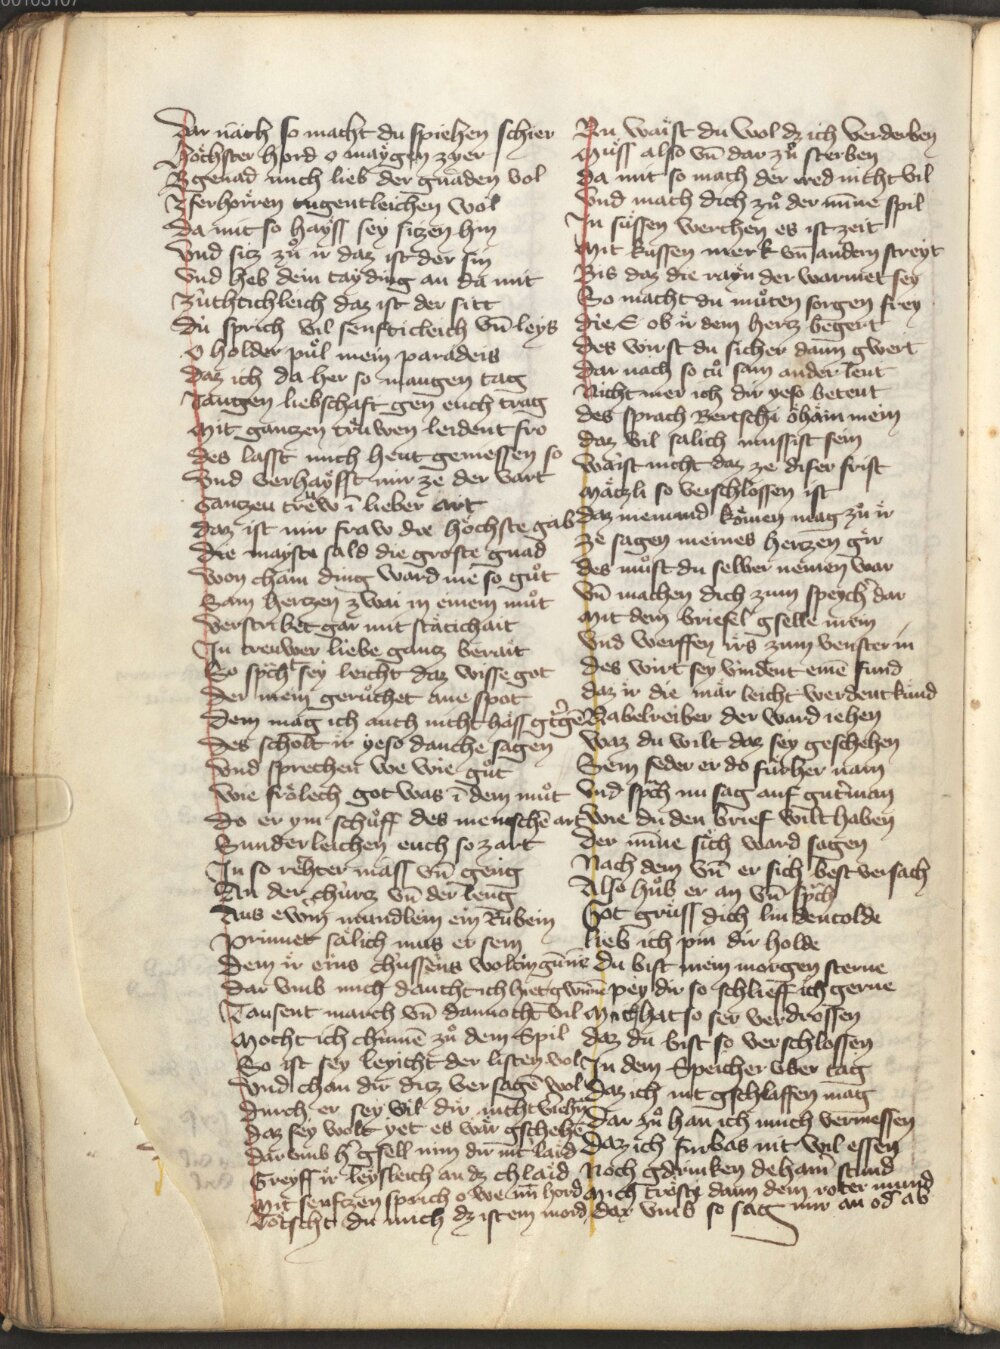 00103107
Dar näch so macht du spiehen schier
Höchster hord o mäygin zyer
Bgenad mich lieb der gnäden vol
Vferhörren tugentleichen wol
Da mit so hayss sey sitzen hin
Vnd sitz zů ir daz ist der sin
Vnd heb dein tayding an da mit
Züchtichleich daz ist der sitt
Du sprich vil senfticleich vn̄ leys
O holder půl mein paradeis
Daz ich da her so mangen tag
Taugen liebschaft gen euch trag
Mit gantzen trüwen leident fro
Des lasst mich heut geniessen so
Vnd verhaysst mir ze der vart
Gantzen trew ī lieber art
Daz ist mir fraw die höchste gab
Die mayste säld die groste gnad
Won chain ding ward nie so gůt
Sam hertzen zwai in einem můt
Verstriket gar mit stätichait
In treuwer liebe gantz berait
So spch sey leicht daz wisse got
Der mein gerůchet ane spot
Dem mag ich auch nicht häss
Des scholt ir yeso danche sagen
Vnd sprechen we wie gůt
Wie frölech got was ī dem můt
Do er ym schůff des menschē art
Sunderleichen euch so zart
In so rehter mäss vn̄ geng
An der chürtz vn̄ der leng
Aus ewrm mündlein ein Rubein
Prinnet sälich mus er sein
Dem ir eins chussens wolten günne
Dar vmb mich däucht ich hiet gwune
Tausent march vn̄ dannocht vil
Möcht ich chūmē zů dem Spil
So ist sey leyicht der listen vol
Vnd chan dir ditz versagē wol
Durch er sey wil dir nicht
Daz sey wolt yet es wär gschehē
Dar vmb h gsell nim dir nit laid
Greyff ir leysleich an dz chlaid
Mit senftzen sprich o we mī hord
Tötscht du mich dz ist ein mord
Nu waist du wol dz ich verderben
Müss also vn̄ dar zů sterben
Da mit so mach der red nicht vil
Vnd mach dich zů der mīne spil
In süssen werchen es ist zeit
Mit kussen merk vn̄ andern streyt
Bis daz die rayn der warmet sey
So macht du můten sorgen frey
Die E ob ir dem hertz begert
Des wirst du sicher dann gwert
Dar nach so tů sam ander leut
Nicht mer ich dir yeso beteut
Des sprach Bertschi öhäin mein
Daz vil salich mussist sein
Waist nicht daz ze diser frist
Mätzli so verschlossen ist
Daz niemand kömen mag zů ir
Ze sagen meines hertzen gir
Des můst du selber nemen war
Vn̄ machen dich zum speycher dar
Mit dem briefel gselle mein
Vnd werffen irs zum venster in
Des wirt sey vindent einē fund
Daz ir die mär leicht werdent kund
Nabelreiber der ward iehen
Waz du wilt daz sey geschehen
Sein feder er do fürher nam
Vnd spch nu sag auf guter man
Wie du den brief wilt haben
Der mīne sich ward sagen
Nach dem vn̄ er sich best versach
Also hůb er an vn̄ spch
Got grüss dich lindentolde
Lieb ich pin dir holde
Du bist mein morgen sterne
Pey dir so schlieff ich gerne
Mich hat so ser verdrossen
Daz du bist so verschlossen
In dem Speicher vber tag
Daz ich nit gschlaffen mag
Dar zů han ich mich vermessen
Daz ich fürbas nit wil essen
Noch gdrinken dehain stund
Mich tröste dann dein roter mund
Dar vmb so sag mir an od ab